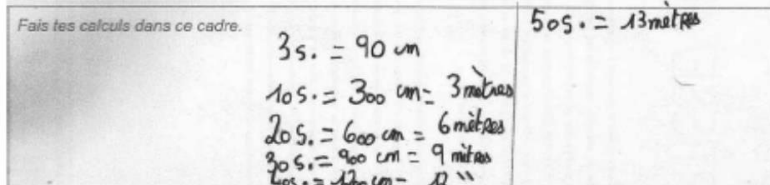 Fais tes calculs dans ce cadre.
3 s. = 90 cm
10 s. = 300 cm = 3 mètres
20 s. = 600 cm = 6 mètres
30 s. = 900 cm = 9 mètres
40s. = 1200 cm = 12 "
50 s. = 13 mètres